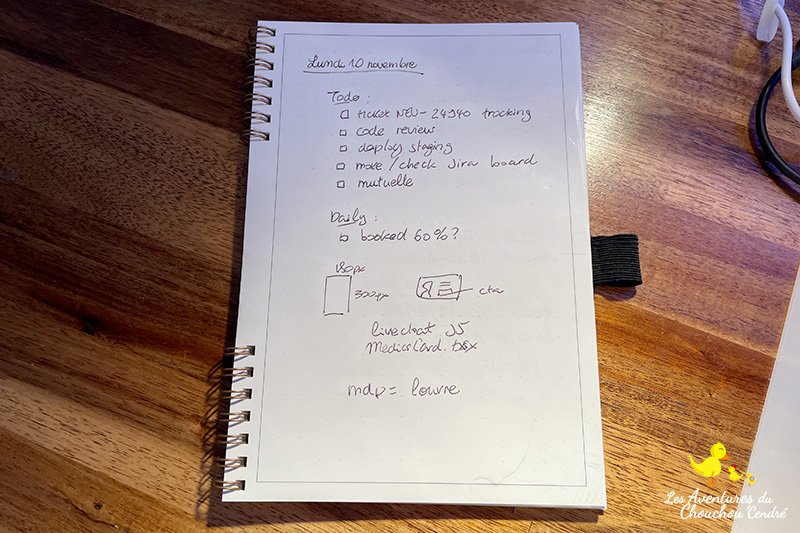 Lundi 10 novembre
Todo :
ticket NEU-24940 tracking
code review
deploy staging
move / check Jira board
mutuelle
Daily :
booked 60%?
180px
300px
cta
livechat JS
MediaCard.tsx
mdp = louvre
Les Aventures du
Chouchou Cendré